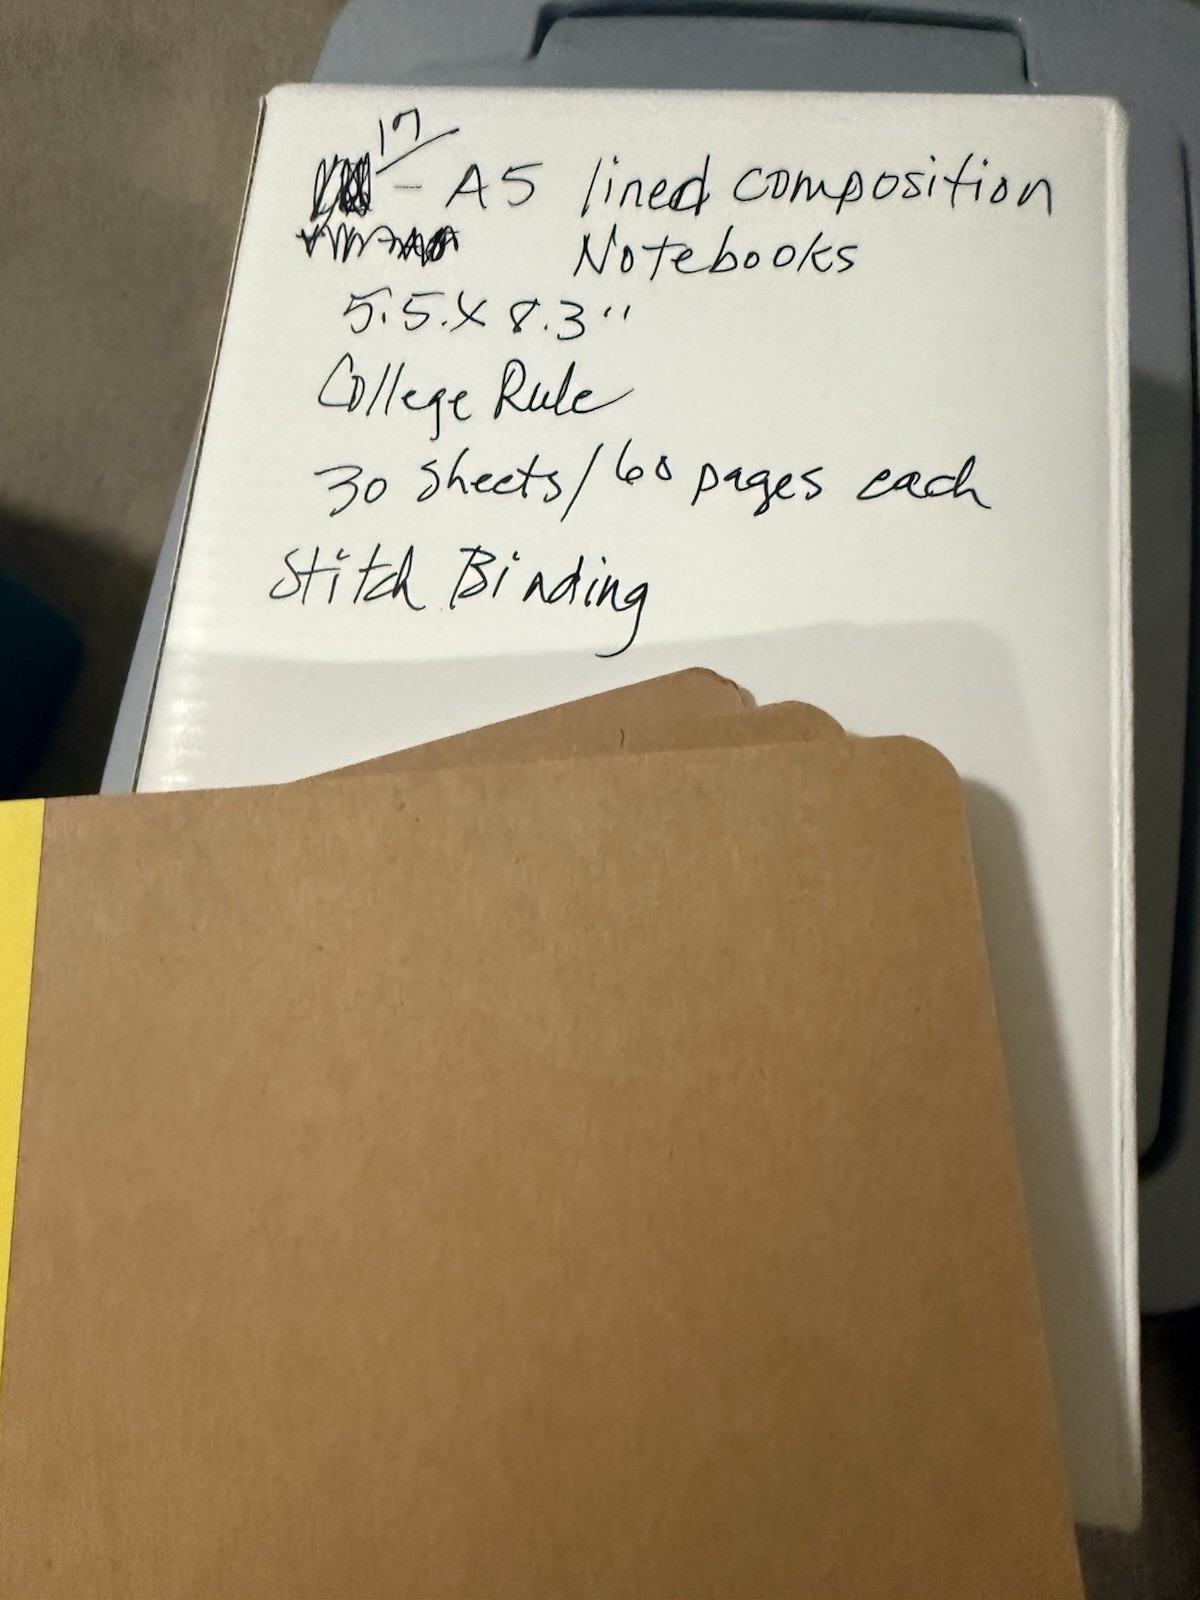 17
- A5 lined composition
Notebooks
5.5.X 8.3"
College Rule
30 Sheets/60 pages each
Stitch Binding